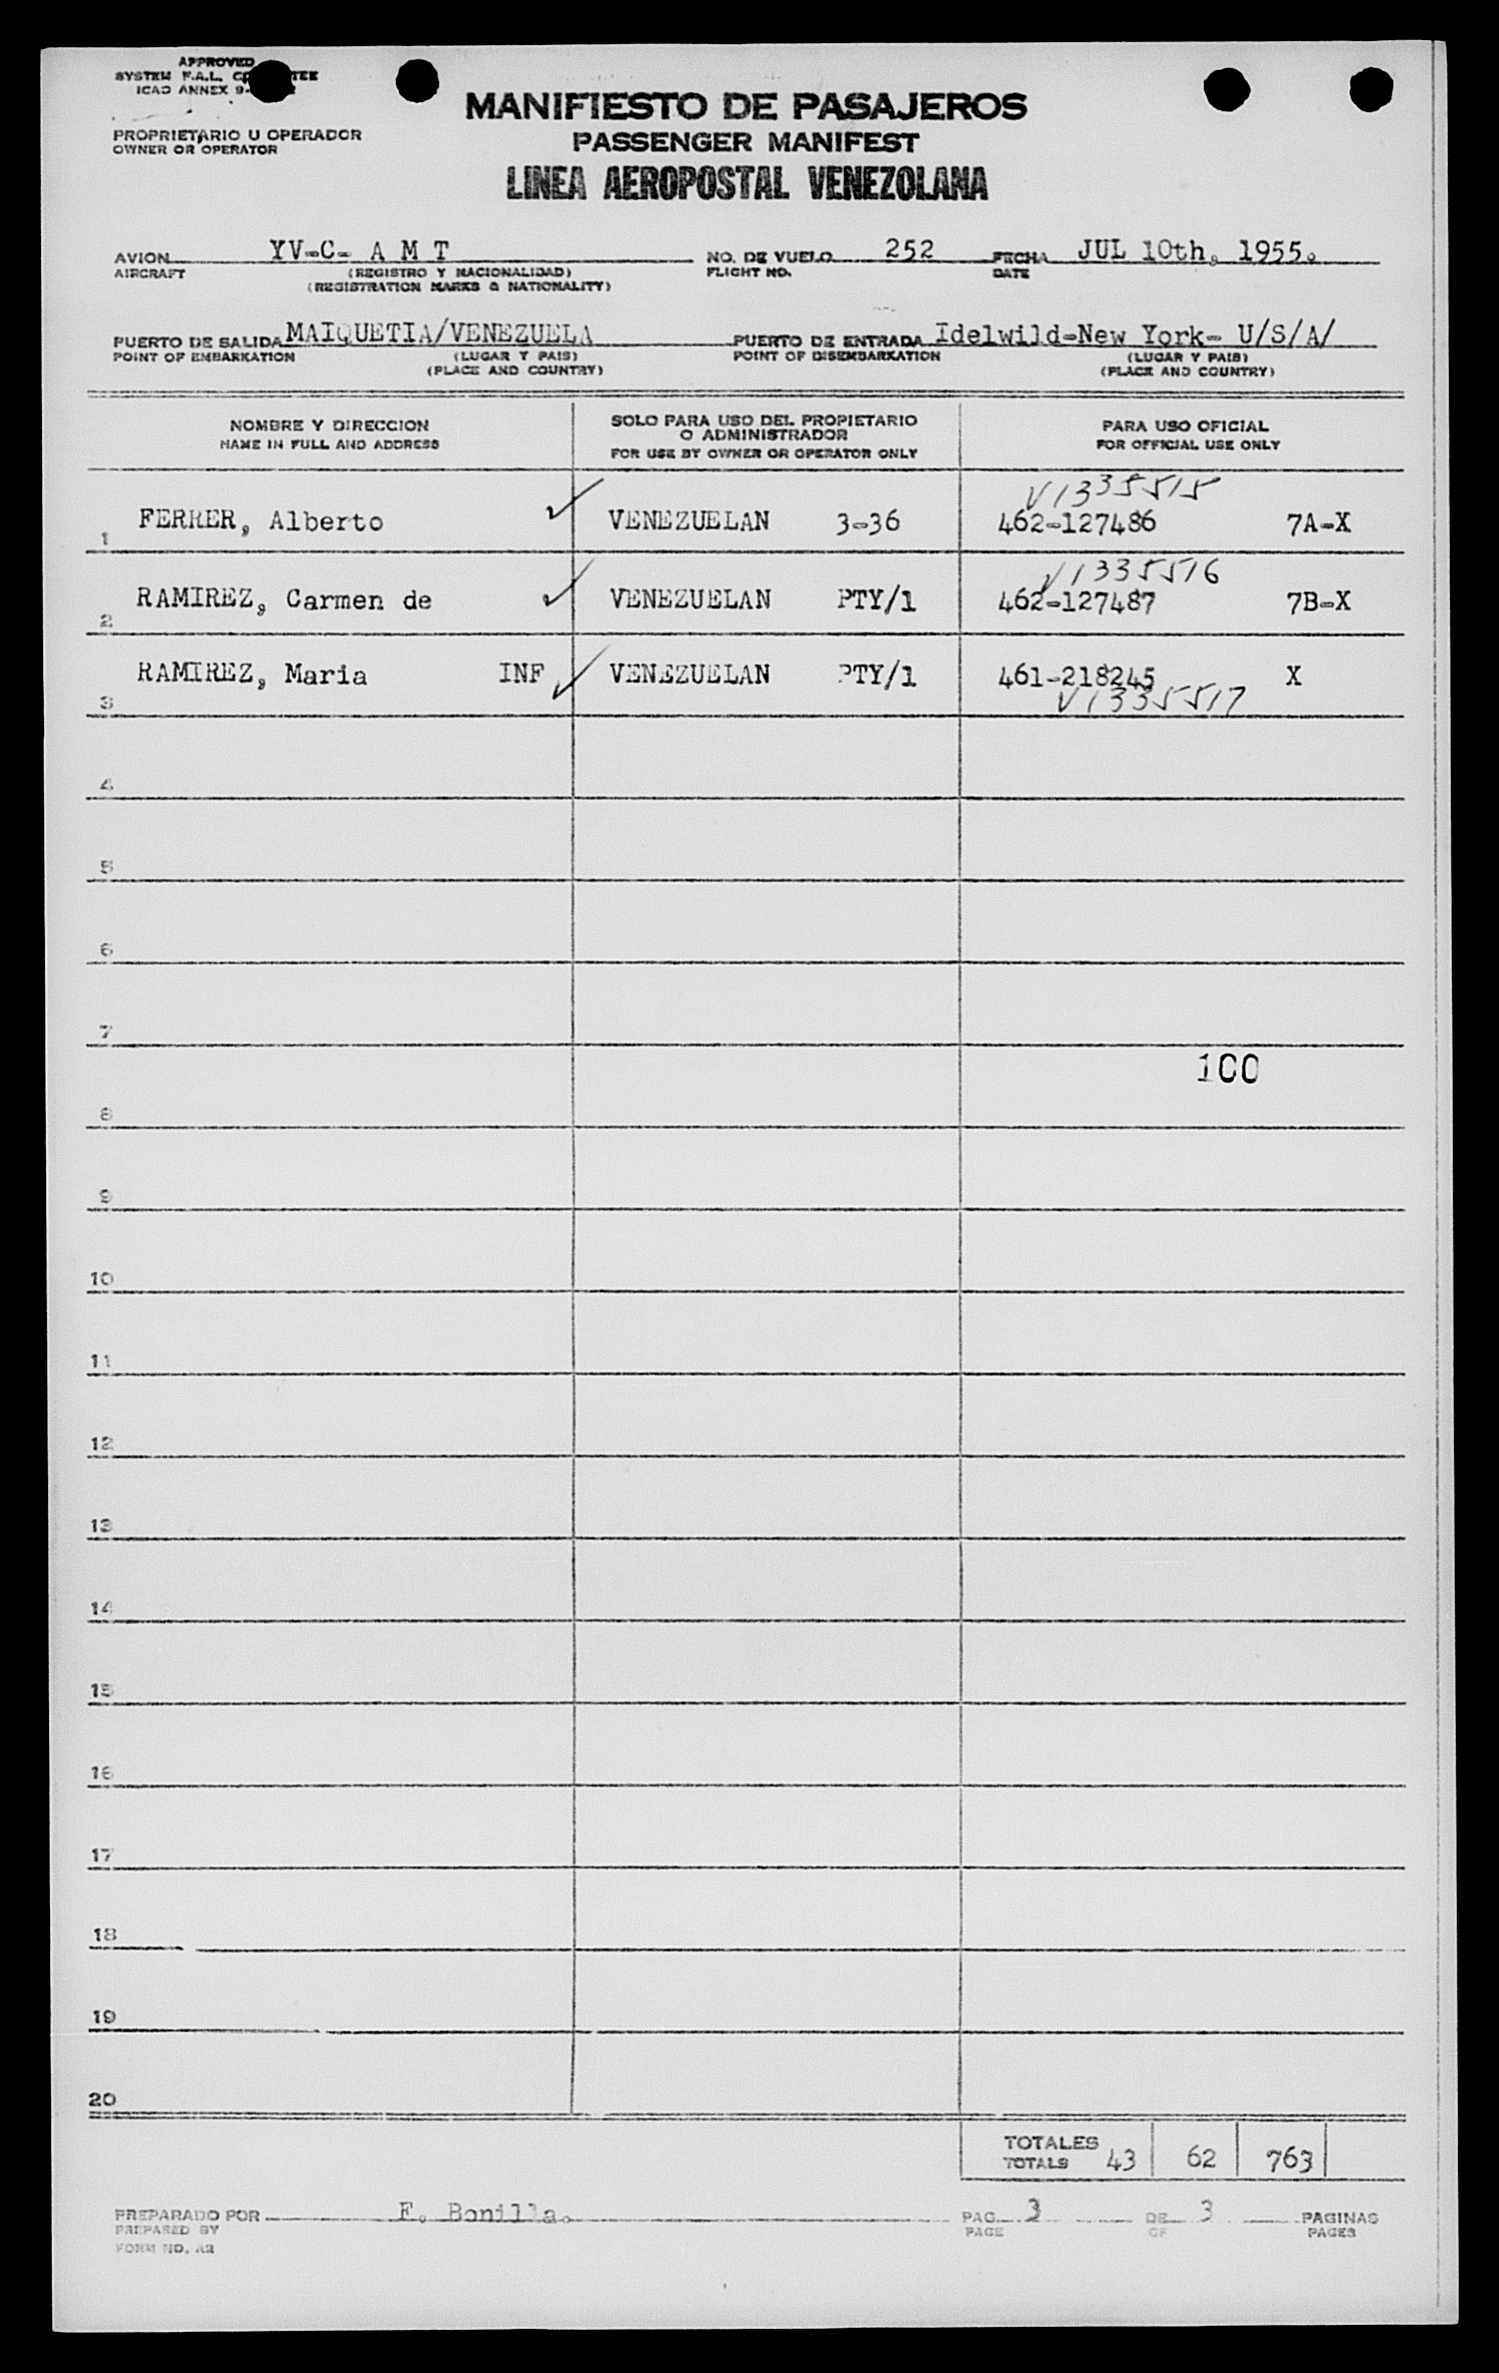 APPROVED
SYSTEM F.A.L. TEE
ICAO ANNEX 9-
PROPRIETARIO U OPERADOR
OWNER OR OPERATOR
MANIFIESTO DE PASAJEROS
PASSENGER MANIFEST
LINEA AEROPOSTAL VENEZOLANA
AVION YV-C- A M T NO. DE VUELO 252 FECHA JUL 10th, 1955.
AIRCRAFT (REGISTRO Y NACIONALIDAD) FLIGHT NO. DATE
(REGISTRATION MARKS & NATIONALITY)
PUERTO DE SALIDA MAIQUETIA/VENEZUELA PUERTO DE ENTRADA Idelwild-New York- U/S/A/
POINT OF EMBARKATION (LUGAR Y PAIS) POINT OF DISEMBARKATION (LUGAR Y PAIS)
(PLACE AND COUNTRY) (PLACE AND COUNTRY)
NOMBRE Y DIRECCION SOLO PARA USO DEL PROPIETARIO PARA USO OFICIAL
O ADMINISTRADOR
NAME IN FULL AND ADDRESS FOR USE BY OWNER OR OPERATOR ONLY FOR OFFICIAL USE ONLY
V1335515
FERRER, Alberto ✓ VENEZUELAN 3-36 462-127486 7A-X
1
V1335516
RAMIREZ, Carmen de ✓ VENEZUELAN PTY/1 462-127487 7B-X
2
RAMIREZ, Maria INF ✓ VENEZUELAN PTY/1 461-218245 X
3 V1335517
4
5
6
7
100
8
9
10
11
12
13
14
15
16
17
18
19
20
TOTALES
TOTALS 43 62 763
PREPARADO POR E. Bonilla. PAG. 3 DE 3 PAGINAS
PREPARED BY PAGE OF PAGES
FORM NO. A2